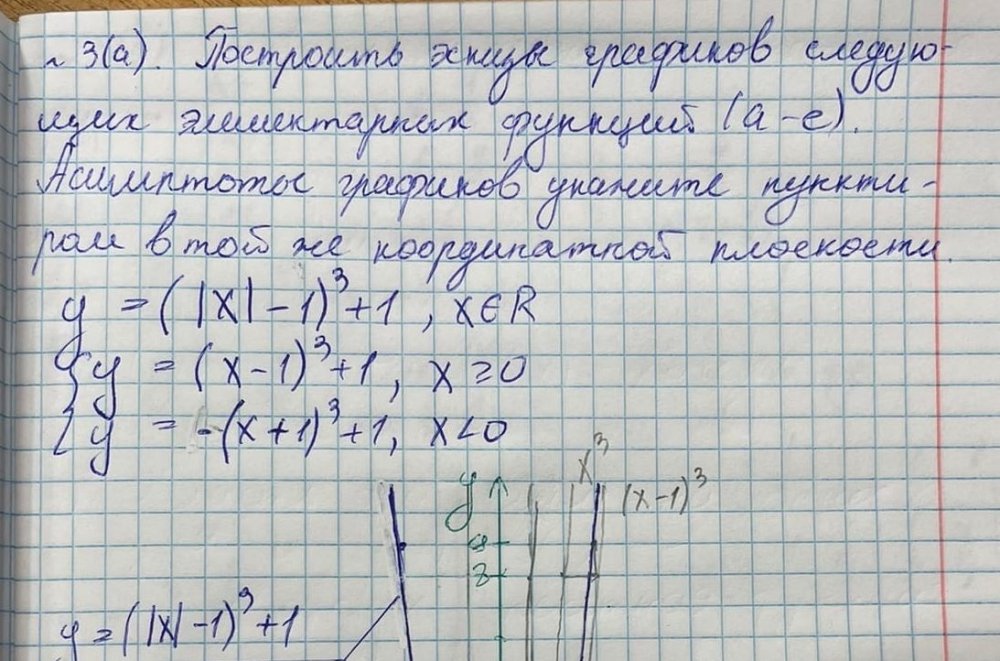 № 3(а). Построить эскизы графиков следую-
щих элементарных функций (а-е).
Асимптоты графиков укажите пункти-
ром в той же координатной плоскости.
y = (|x|-1)³+1, x∈R
{y = (x-1)³+1, x≥0
{y = -(x+1)³+1, x<0
x³
y
(x-1)³
y = (|x|-1)³+1